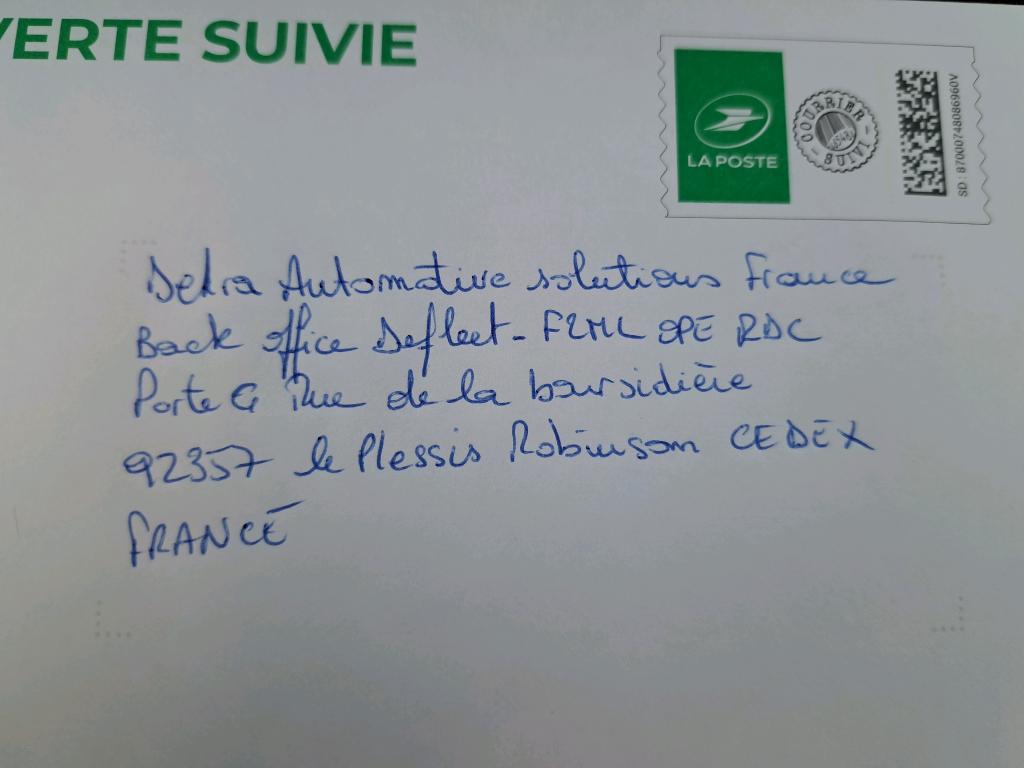 VERTE SUIVIE
LA POSTE
COURRIER SUIVI
SD : 87000748086960V
Dekra Automative solutions France
Back office Defleet - F2ML OPE RDC
Porte G Rue de la boursidière
92357 le Plessis Robinson CEDEX
FRANCE